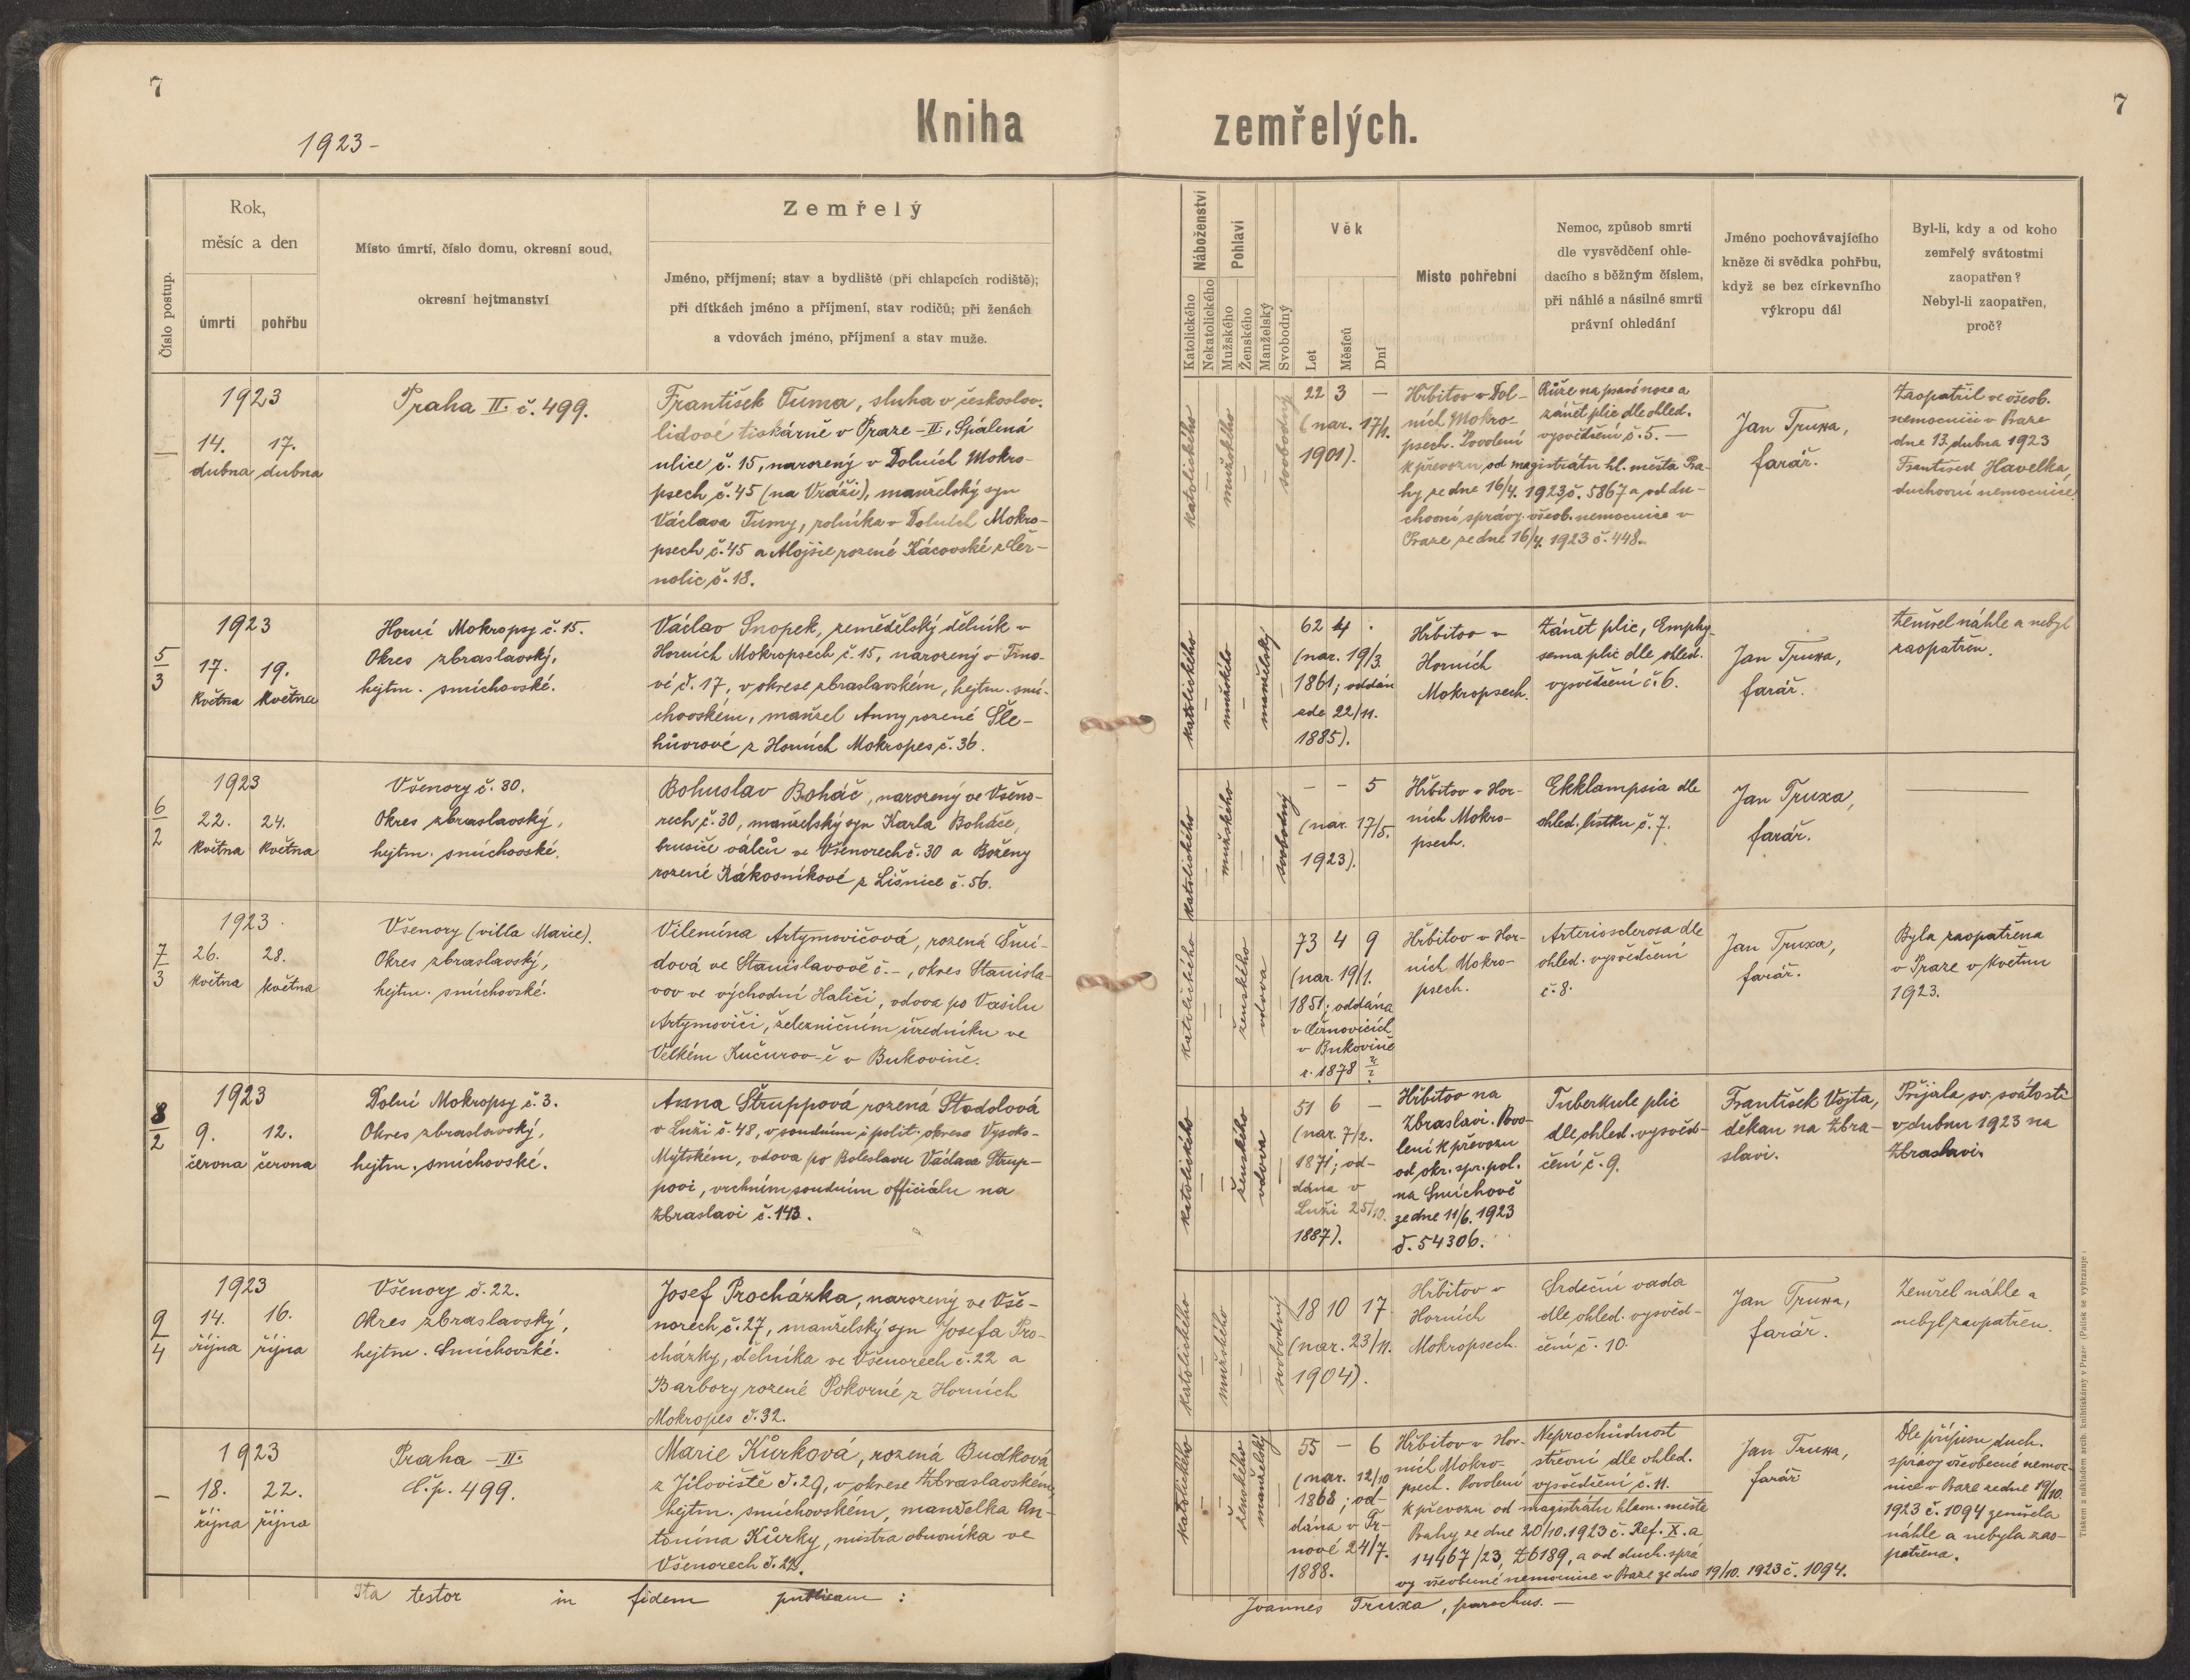 7
Kniha zemřelých.
7
1923-
Číslo postup.
Rok,
měsíc a den
úmrtí
pohřbu
Místo úmrtí, číslo domu, okresní soud,
okresní hejtmanství
Zemřelý
Jméno, příjmení; stav a bydliště (při chlapcích rodiště);
při dítkách jméno a příjmení, stav rodičů; při ženách
a vdovách jméno, příjmení a stav muže.
Náboženství
Katolického
Nekatolického
Pohlaví
Mužského
Ženského
Manželský
Svobodný
Věk
Let
Měsíců
Dní
Místo pohřební
Nemoc, způsob smrti
dle vysvědčení ohle-
dacího s běžným číslem,
při náhlé a násilné smrti
právní ohledání
Jméno pochovávajícího
kněze či svědka pohřbu,
když se bez církevního
výkropu dál
Byl-li, kdy a od koho
zemřelý svátostmi
zaopatřen?
Nebyl-li zaopatřen,
proč?
—
1923
14. 17.
dubna dubna
Praha II. č. 499.
František Tuma, sluha v českoslov.
lidové tiskárně v Praze-II, Spálená
ulice č. 15, narozený v Dolních Mokro-
psech č. 45 (na Vráži), manželský syn
Václava Tumy, rolníka v Dolních Mokro-
psech č. 45 a Aloisie rozené Kácovské z Čer-
nolic č. 18.
katolického
mužského
svobodný
22 3 —
(nar. 17/1.
1901).
Hřbitov v Dol-
ních Mokro-
psech. Povolení
k převozu od magistrátu hl. města Pra-
hy ze dne 16/4. 1923 č. 5867 a od du-
chovní správy všeob. nemocnice v
Praze ze dne 16/4. 1923 č. 448.
Růže na pravé noze a
zánět plic dle ohled.
vysvědčení č. 5. —
Jan Truxa,
farář.
Zaopatřil ve všeob.
nemocnici v Praze
dne 13. dubna 1923
František Havelka,
duchovní nemocnice.
5
3
1923
17. 19.
května května
Horní Mokropsy č. 15.
Okres zbraslavský,
hejtm. smíchovské.
Václav Snopek, zemědělský dělník v
Horních Mokropsech č. 15, narozený v Trno-
vé č. 17, v okrese zbraslavském, hejtm. smí-
chovském, manžel Anny rozené Šle-
hůvrové z Horních Mokropes č. 36.
katolického
mužského
manželský
62 4 .
(nar. 19/3.
1861; oddán
zde 22/11.
1885).
Hřbitov v
Horních
Mokropsech.
Zánět plic, Emphy-
sema plic dle ohled.
vysvědčení č. 6.
Jan Truxa,
farář.
Zemřel náhle a nebyl
zaopatřen.
6
2
1923
22. 24.
května května
Všenory č. 30.
Okres zbraslavský,
hejtm. smíchovské.
Bohuslav Boháč, narozený ve Všeno-
rech č. 30, manželský syn Karla Boháče,
brusiče válců ve Všenorech č. 30 a Boženy
rozené Rákosníkové z Líšnice č. 56.
katolického
mužského
svobodný
— — 5
(nar. 17/5.
1923).
Hřbitov v Hor-
ních Mokro-
psech.
Ekklampsia dle
ohled. lístku č. 7.
Jan Truxa,
farář.
7
3
1923.
26. 28.
května května
Všenory (villa Marie).
Okres zbraslavský,
hejtm. smíchovské.
Vilemína Artymovičová, rozená Šmí-
dová ve Stanislavově č. -, okres Stanisla-
vov ve východní Haliči, vdova po Vasilu
Artymoviči, železničním úředníku ve
Velkém Kučurov-ě v Bukovině.
katolického
ženského
vdova
73 4 9
(nar. 19/1.
1851; oddána
v Černovicích
v Bukovině
r. 1878 ?/?
Hřbitov v Hor-
ních Mokro-
psech.
Arteriosclerosa dle
ohled. vysvědčení
č. 8.
Jan Truxa,
farář.
Byla zaopatřena
v Praze v květnu
1923.
8
2
1923
9. 12.
června června
Dolní Mokropsy č. 3.
Okres zbraslavský,
hejtm. smíchovské.
Anna Štruppová rozená Stodolová
v Luži č. 48, v soudním i polit. okrese Vysoko-
Mýtském, vdova po Boleslavu Václavu Štrup-
povi, vrchním soudním officiálu na
Zbraslavi č. 143.
katolického
ženského
vdova
51 6 —
(nar. 7/2.
1871; od-
dána v
Luži 25/10.
1887).
Hřbitov na
Zbraslavi. Povo-
lení k převozu
od okr. spr. pol.
na Smíchově
ze dne 11/6. 1923
č. 54306.
Tuberkule plic
dle ohled. vysvěd-
čení č. 9.
František Vojta,
děkan na Zbra-
slavi.
Přijala sv. svátosti
v dubnu 1923 na
Zbraslavi.
9
4
1923
14. 16.
října října
Všenory č. 22.
Okres zbraslavský,
hejtm. Smíchovské.
Josef Procházka, narozený ve Vše-
norech č. 27, manželský syn Josefa Pro-
cházky, dělníka ve Všenorech č. 22 a
Barbory rozené Pokorné z Horních
Mokropes č. 32.
katolického
mužského
svobodný
18 10 17
(nar. 23/11.
1904).
Hřbitov v
Horních
Mokropsech.
Srdeční vada
dle ohled. vysvěd-
čení č. 10.
Jan Truxa,
farář.
Zemřel náhle a
nebyl zaopatřen.
—
1923
18. 22.
října října
Praha -II.
č.p. 499.
Marie Kůrková, rozená Budková
z Jíloviště č. 29, v okrese Zbraslavském,
hejtm. smíchovském, manželka An-
tonína Kůrky, mistra obuvníka ve
Všenorech č. 22.
katolického
ženského
manželský
55 — 6
(nar. 12/10
1868; od-
dána v Tr-
nové 24/7.
1888.
Hřbitov v Hor-
ních Mokro-
psech. Povolení
k převozu od magistrátu hlav. města
Prahy ze dne 20/10. 1923 č. Ref. X. a
14467/23, Z6189, a od duch. sprá
vy všeobecné nemocnice v Praze ze dne 19/10. 1923 č. 1094.
Neprochůdnost
střevní dle ohled.
vysvědčení č. 11.
Jan Truxa,
farář
Dle přípisu duch.
správy všeobecné nemoc-
nice v Praze ze dne 19/10.
1923 č. 1094 zemřela
náhle a nebyla zao-
patřena.
Ita testor in fidem publicam :
Joannes Truxa, parochus. —
Tiskem a nákladem arcib. knihtiskárny v Praze (Patisk se vyhrazuje